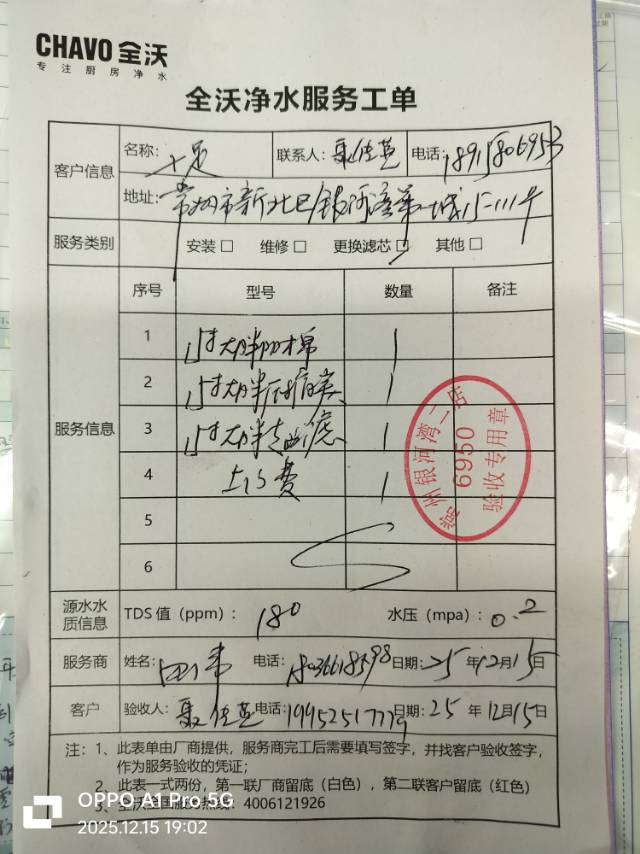 CHAVO 全沃
专注厨房净水
全沃净水服务工单
客户信息
名称：
联系人：聂佳莲
电话：18915806953
地址：常州市新北区银河湾第一城15-111号
服务类别
安装□ 维修□ 更换滤芯□ 其他□
服务信息
序号 型号 数量 备注
1 1
2 1
3 1
4 上门费 1
5
6
常州银河湾二店
6950
验收专用章
源水水质信息
TDS 值（ppm）：180
水压（mpa）：0.2
服务商
姓名： 电话：18036618598 日期：25年12月15日
客户
验收人：聂佳莲 电话：19952517779 日期：25年12月15日
注：1、此表单由厂商提供，服务商完工后需要填写签字，并找客户验收签字，
作为服务验收的凭证；
2、此表一式两份，第一联厂商留底（白色），第二联客户留底（红色）
3、全沃全国服务热线：4006121926
OPPO A1 Pro 5G
2025.12.15 19:02